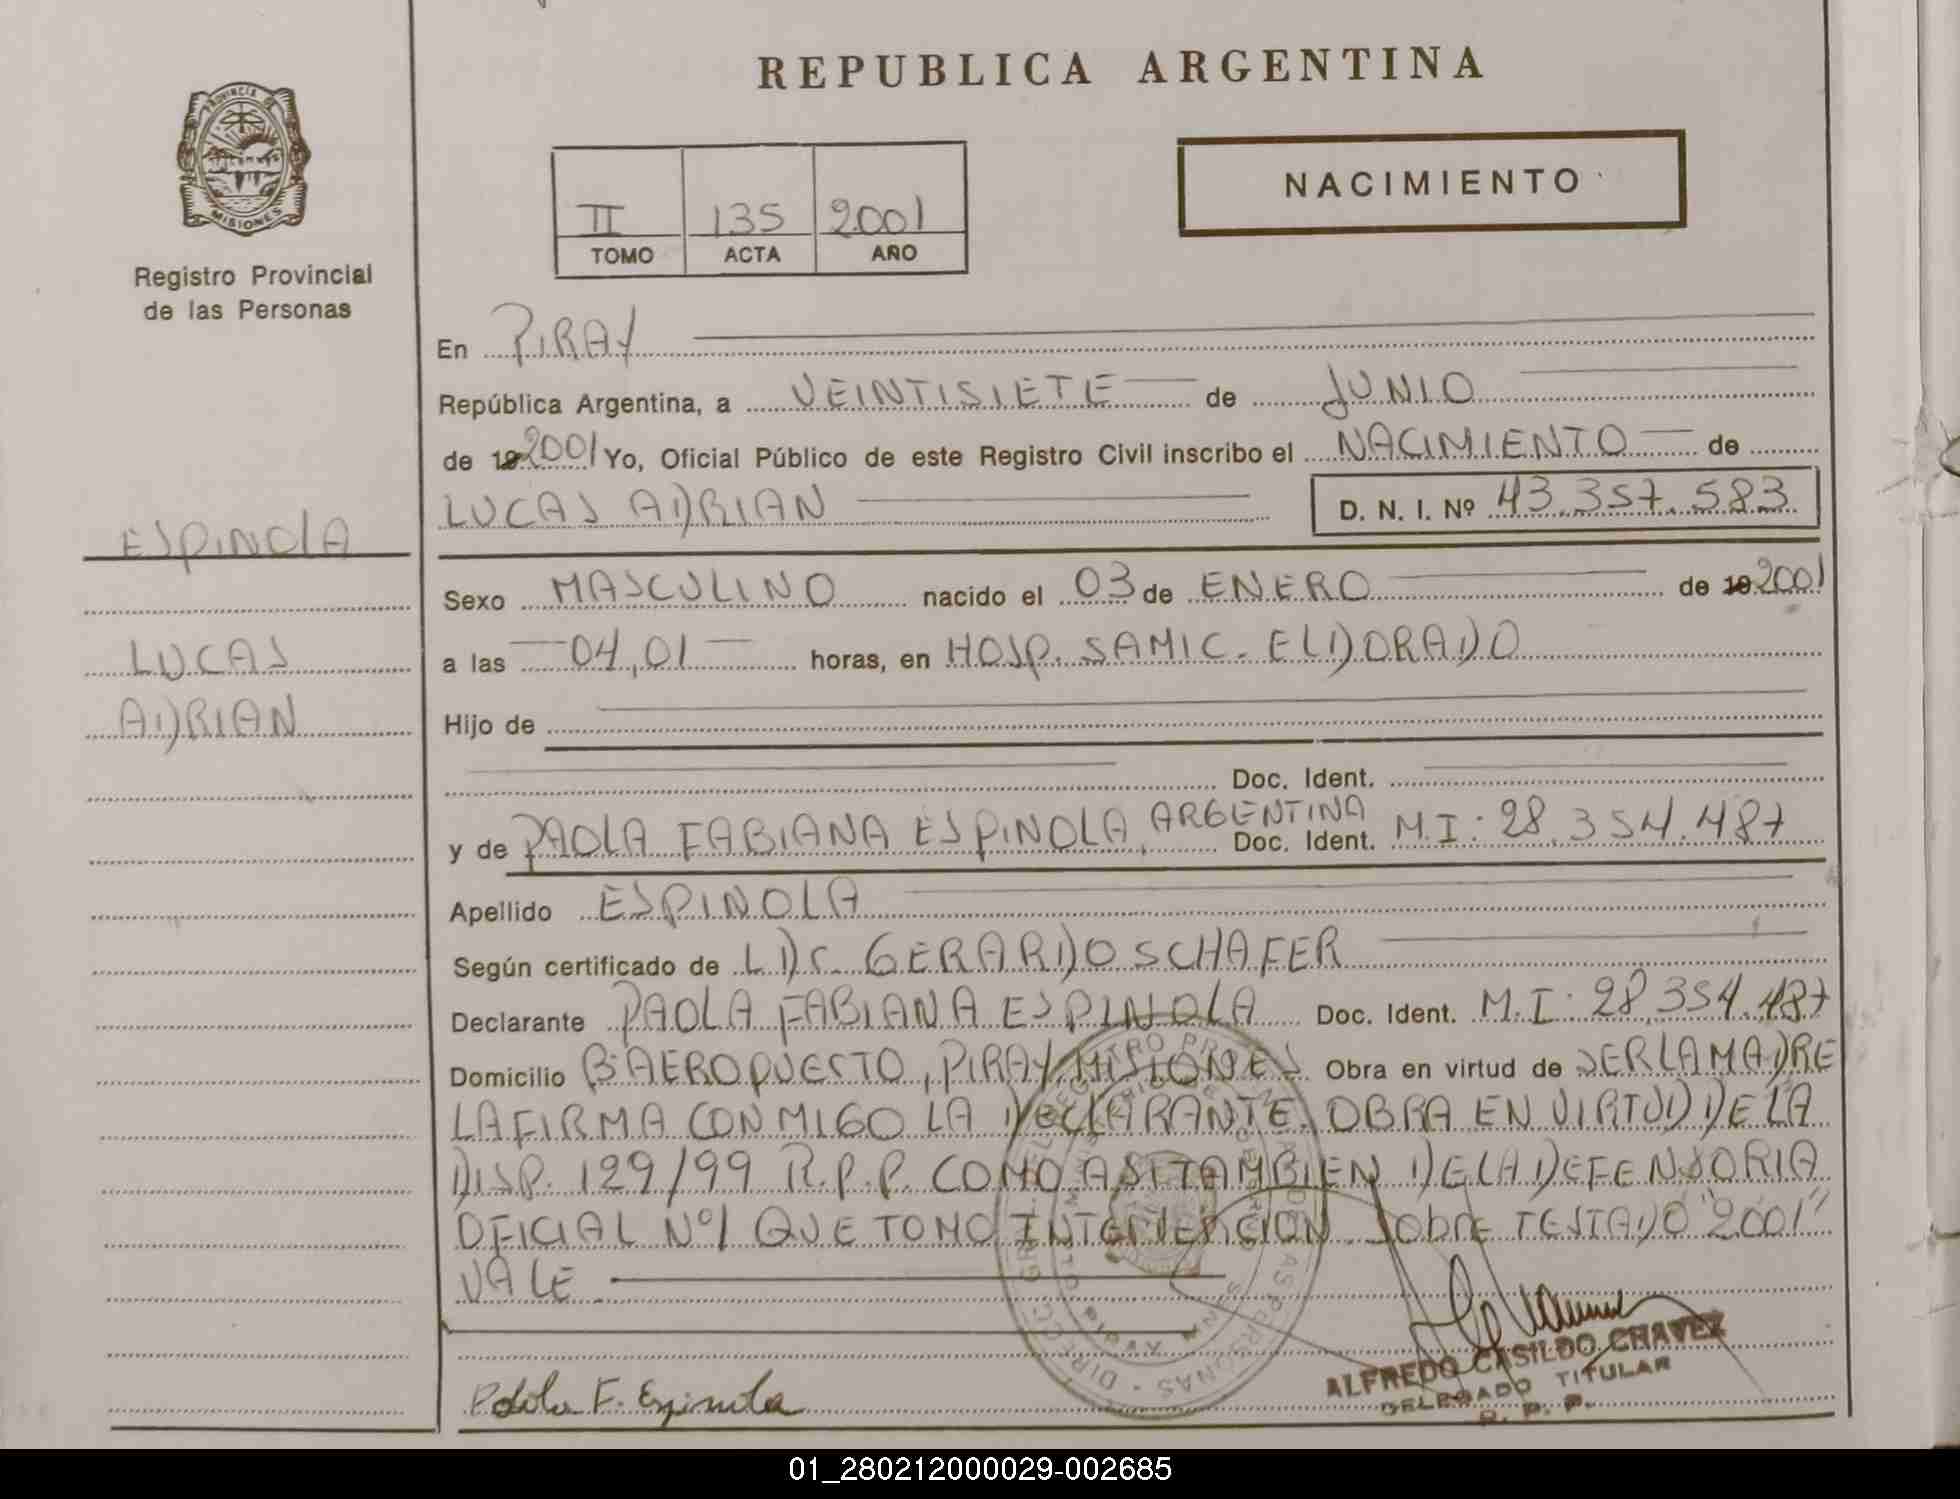 REPUBLICA ARGENTINA
PROVINCIA DE
MISIONES
Registro Provincial
de las Personas
NACIMIENTO
II 135 2001
TOMO ACTA AÑO
En PIRAY
República Argentina, a VEINTISIETE de JUNIO
de 19 2001 Yo, Oficial Público de este Registro Civil inscribo el NACIMIENTO de
LUCAS ADRIAN D. N. I. Nº 43.357.583
ESPINOLA
LUCAS
ADRIAN
Sexo MASCULINO nacido el 03 de ENERO de 19 2001
a las 04,01 horas, en HOSP. SAMIC. ELDORADO
Hijo de
Doc. Ident.
y de PAOLA FABIANA ESPINOLA, ARGENTINA Doc. Ident. M.I: 28.354.487
Apellido ESPINOLA
Según certificado de GERARDO SCHAFER
Declarante PAOLA FABIANA ESPINOLA Doc. Ident. M.I: 28.354.487
Domicilio Bº AEROPUERTO, PIRAY, MISIONES Obra en virtud de SER LA MADRE
LA FIRMA CONMIGO LA DECLARANTE. OBRA EN VIRTUD DE LA
DISP. 129/99 R.P.P. COMO ASI TAMBIEN DE LA DEFENSORIA
OFICIAL Nº1 QUE TOMO INTERVENCION. Sobre TESTADO "2001"
VALE
ALFREDO CASILDO CHAVEZ
DELEGADO TITULAR
R. P. P.
F. Espinola
01_280212000029-002685